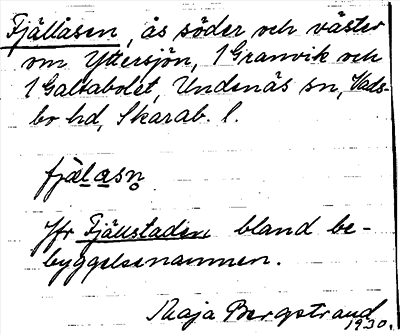 Fjällåsen, ås söder och väster
om Yttersjön, 1 Granvik och
1 Galtabolet, Undenäs sn, Vads-
bo hd, Skarab. l.
fjälasn
Jfr Fjällstaden bland be-
byggelsenamnen.
Maja Bergstrand
1930.